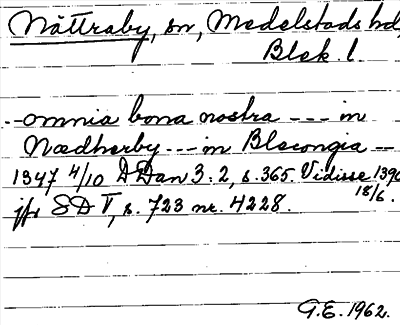 Nättraby, sn, Medelstads hd,
Blek. l.
--omnia bona nostra --- in
Nædherby --- in Blecongia --
1347 4/10 DDan 3:2, s. 365. Vidisse 1396
18/6.
jfr SD V, s. 723 nr. 4228.
G.E. 1962.